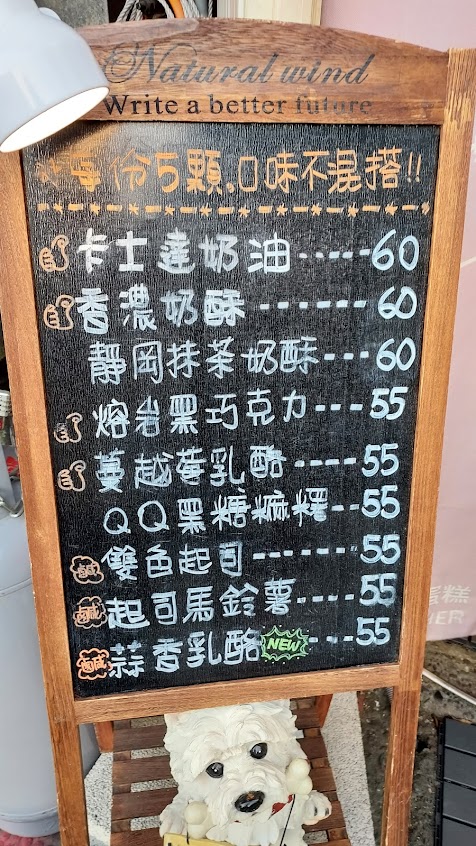 Natural wind
Write a better future
每份5顆.口味不混搭!!
卡士達奶油-----60
香濃奶酥-------60
靜岡抹茶奶酥---60
熔岩黑巧克力---55
蔓越莓乳酪----55
QQ黑糖麻糬--55
鹹 雙色起司------55
鹹 起司馬鈴薯----55
鹹 蒜香乳酪 NEW ---55
蛋糕
HER